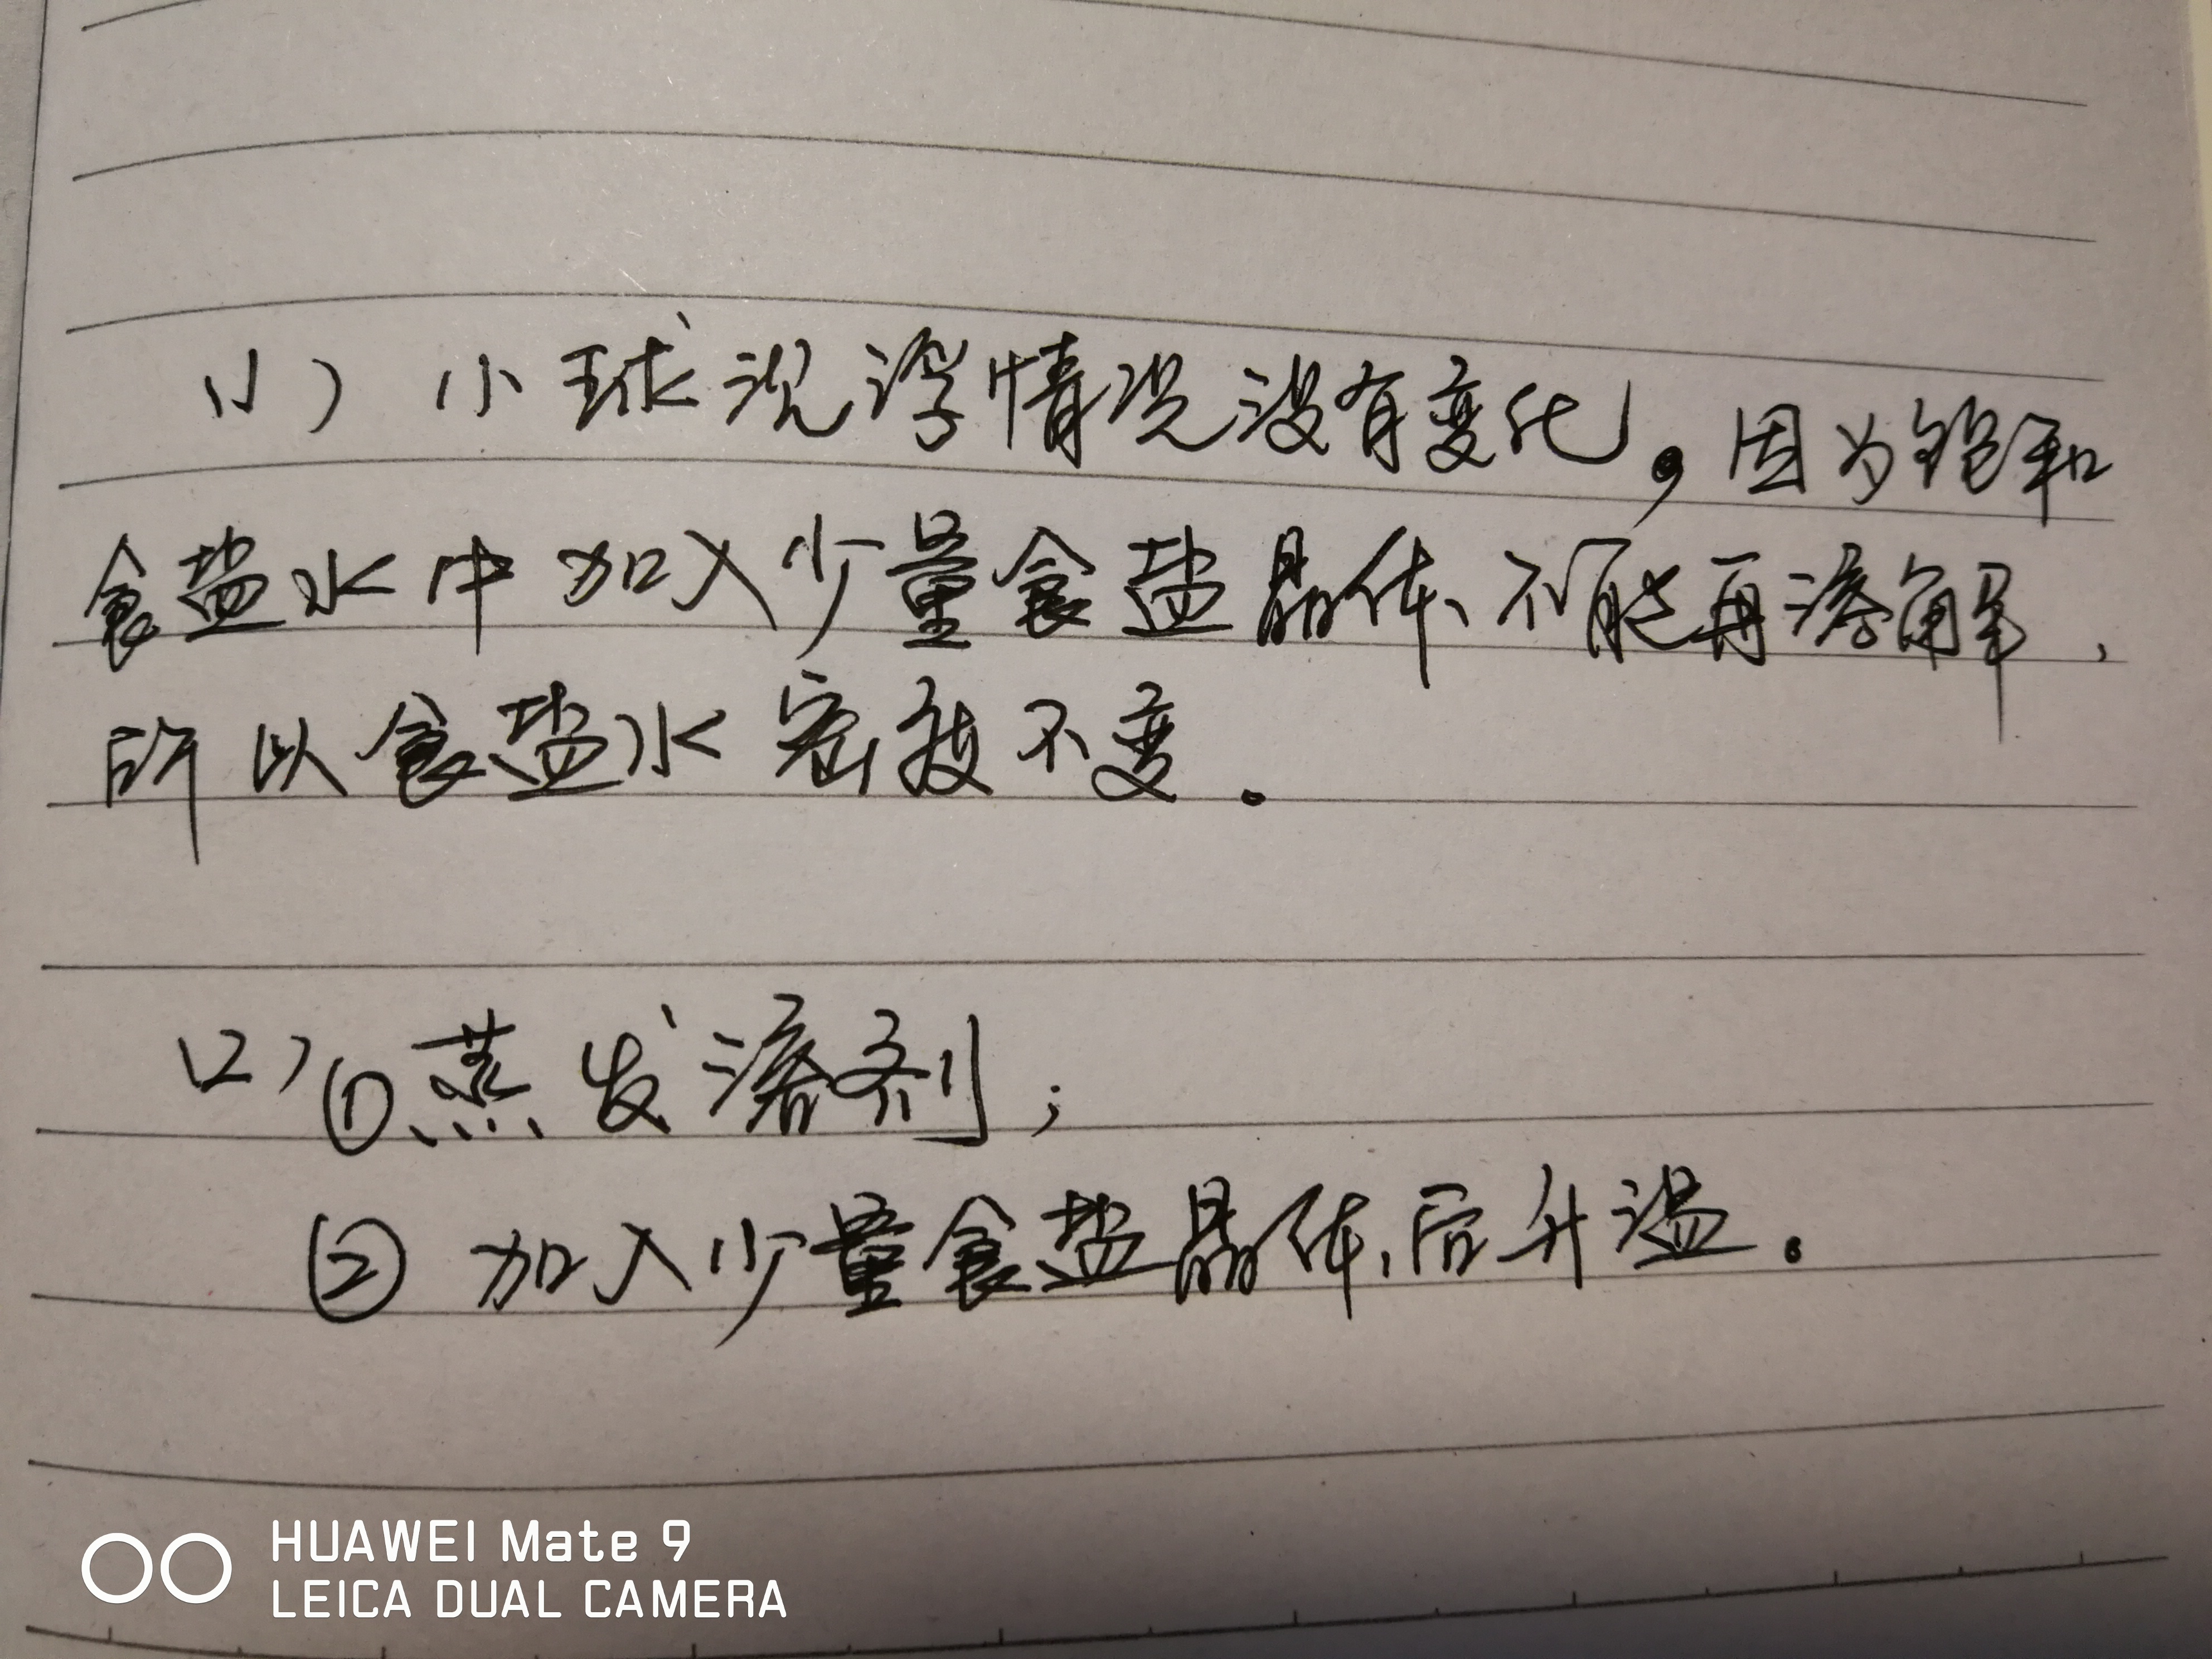 (1) 小球沉浮情况没有变化，因为饱和
食盐水中加入少量食盐晶体、不能再溶解，
所以食盐水密度不变。
(2) ①蒸发溶剂；
② 加入少量食盐晶体，后升温。
HUAWEI Mate 9
LEICA DUAL CAMERA